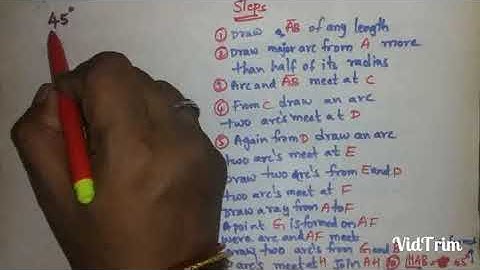 45°
Steps
① Draw a AB of any length
② Draw major arc from A more
than half of its radias
③ Arc and AB meet at C
④ From C draw an arc
two arc's meet at D
⑤ Again from D draw an arc
two arc's meet at E
Draw two arc's from E and D
two arc's meet at F
Draw a ray from A to F
A point G is formed on AF
were arc and AF meet
Draw two arc's from G and
arc's meet at H Join AH ⑩ HAB = 45°
VidTrim